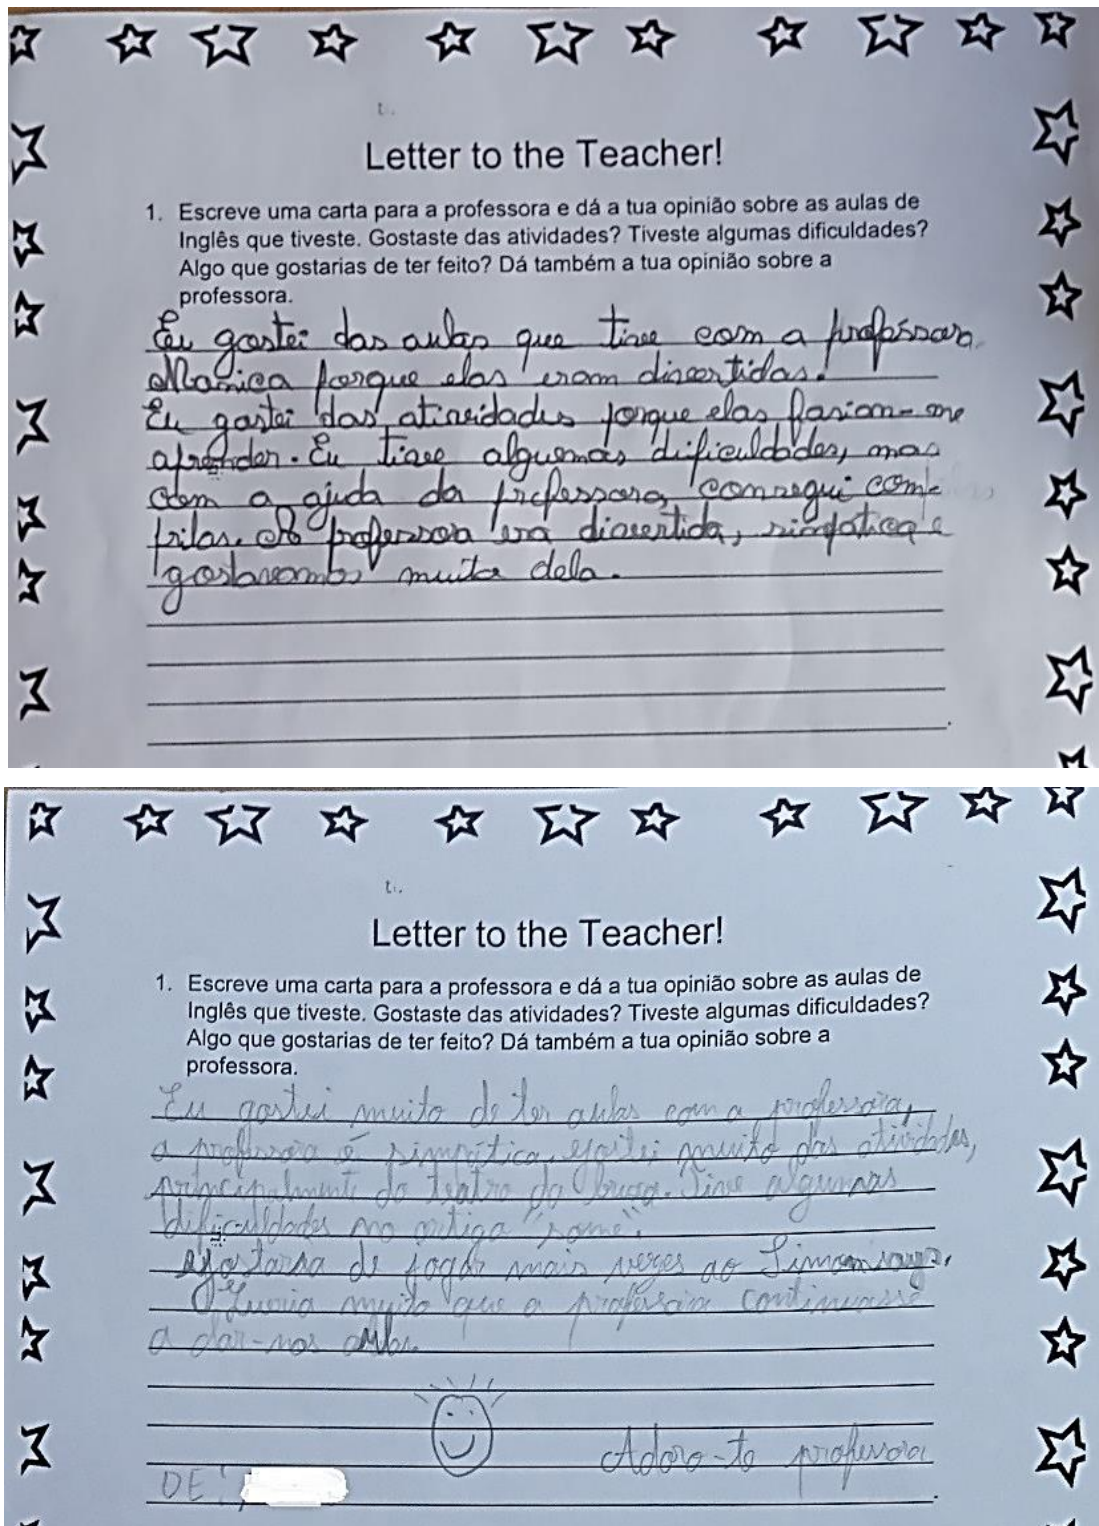 Letter to the Teacher!
1. Escreve uma carta para a professora e dá a tua opinião sobre as aulas de
Inglês que tiveste. Gostaste das atividades? Tiveste algumas dificuldades?
Algo que gostarias de ter feito? Dá também a tua opinião sobre a
professora.
Eu gostei das aulas que tive com a professora
Mónica porque elas eram divertidas.
Eu gostei das atividades porque elas fasiam-me
aprender. Eu tive alguemas dificuldades, mas
com a ajuda da professora consegui com-
prilas. A professora era divertida, simpática e
gostavamos muito dela.
Letter to the Teacher!
1. Escreve uma carta para a professora e dá a tua opinião sobre as aulas de
Inglês que tiveste. Gostaste das atividades? Tiveste algumas dificuldades?
Algo que gostarias de ter feito? Dá também a tua opinião sobre a
professora.
Eu gostei muito de ter aulas com a professora,
a professora é simpática, gostei muito das atividades,
principalmente do teatro da bruxa. Tive algumas
dificuldades no artigo "some".
gostaria de jogar mais vezes ao Simon says.
Queria muito que a professora continuasse
a dar-nos aulas.
Adoro-te professora
DE: